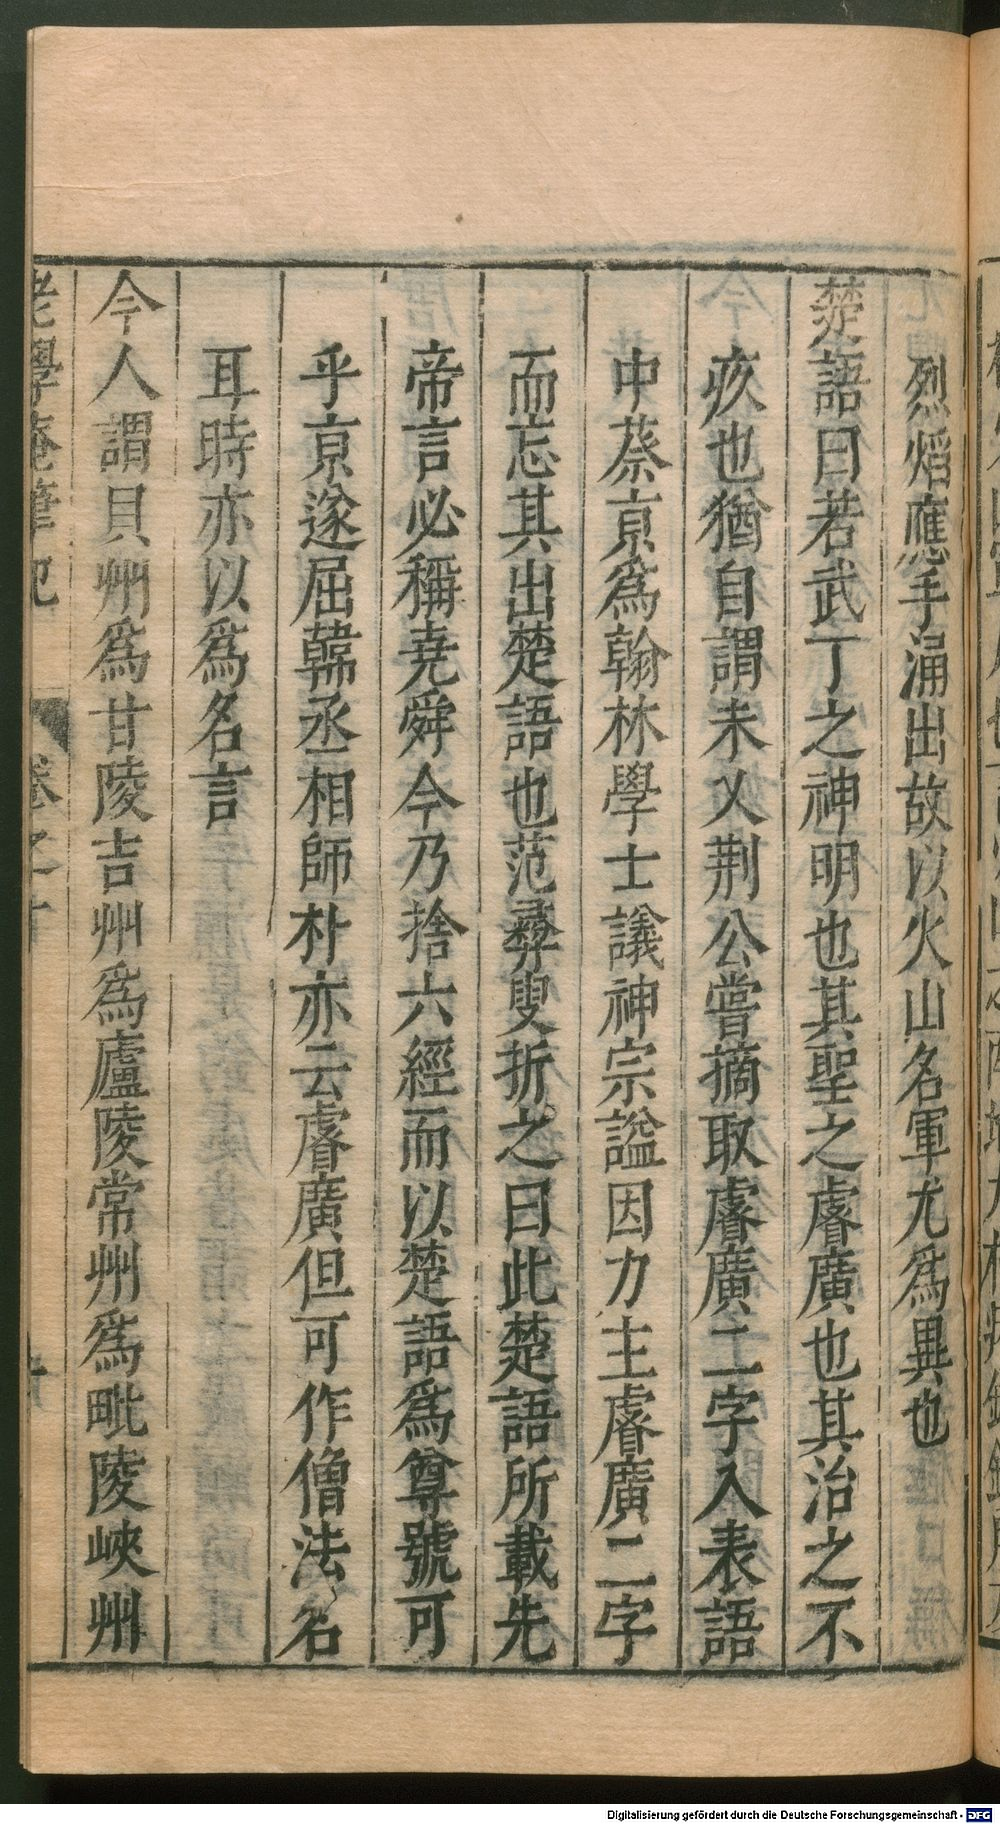 烈熖應手涌出故以火山名軍尤爲異也
楚語曰若武丁之神明也其聖之睿廣也其治之不
疚也猶自謂未乂荆公嘗摘取睿廣二字入表語
中蔡亰爲翰林學士議神宗謚因力主睿廣二字
而忘其出楚語也范彛叟折之曰此楚語所載先
帝言必稱堯舜今乃捨六經而以楚語爲尊號可
乎亰遂屈韓丞相師朴亦云睿廣但可作僧法名
耳時亦以爲名言
今人謂貝州爲甘陵吉州爲廬陵常州爲毗陵峽州
老學庵筆記 卷之十
Digitalisierung gefördert durch die Deutsche Forschungsgemeinschaft - DFG